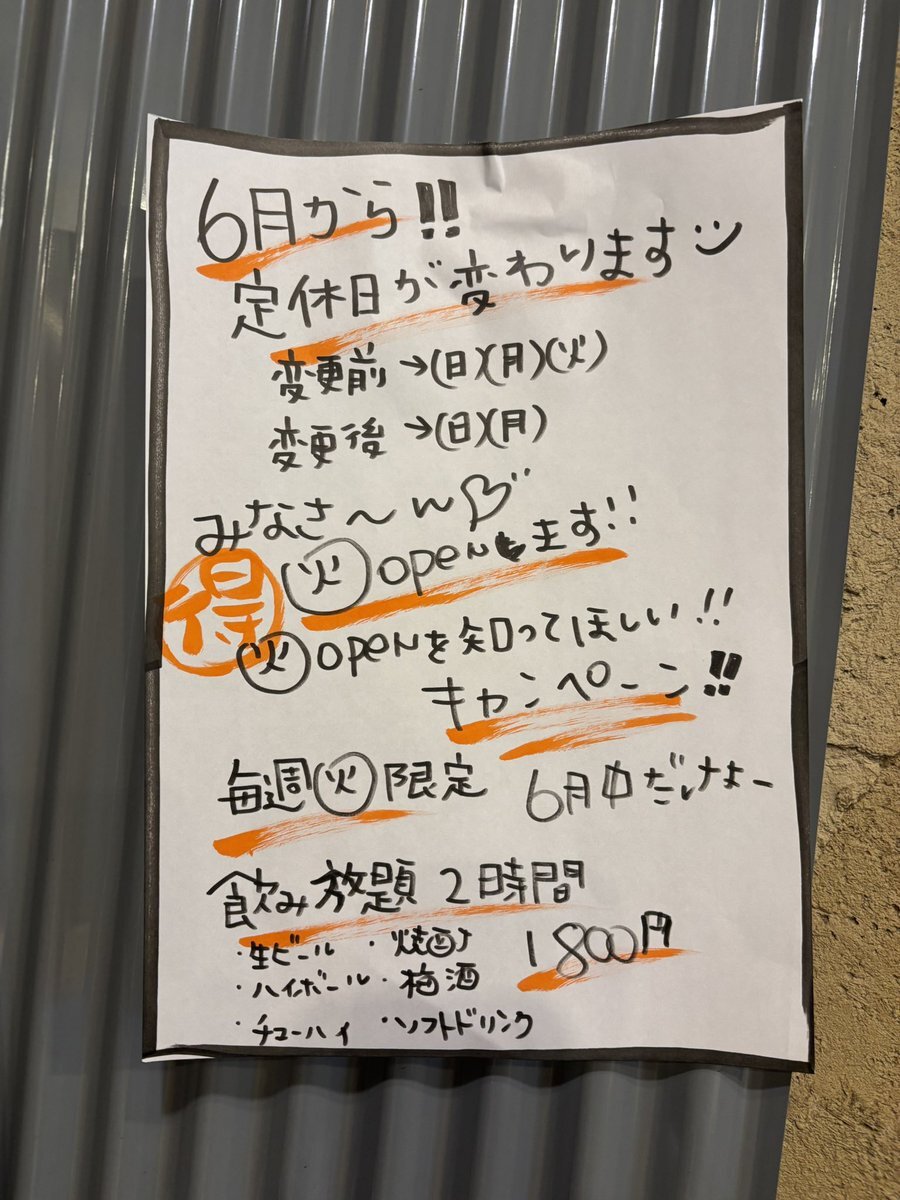 6月から!!
定休日が変わります
変更前→(日)(月)(火)
変更後→(日)(月)
みなさ〜ん♡
得 ㊋openします!!
㊋openを知ってほしい!!
キャンペーン!!
毎週㊋限定 6月中だけよー
飲み放題 2時間
1800円
・生ビール ・焼酎
・ハイボール ・梅酒
・チューハイ ・ソフトドリンク